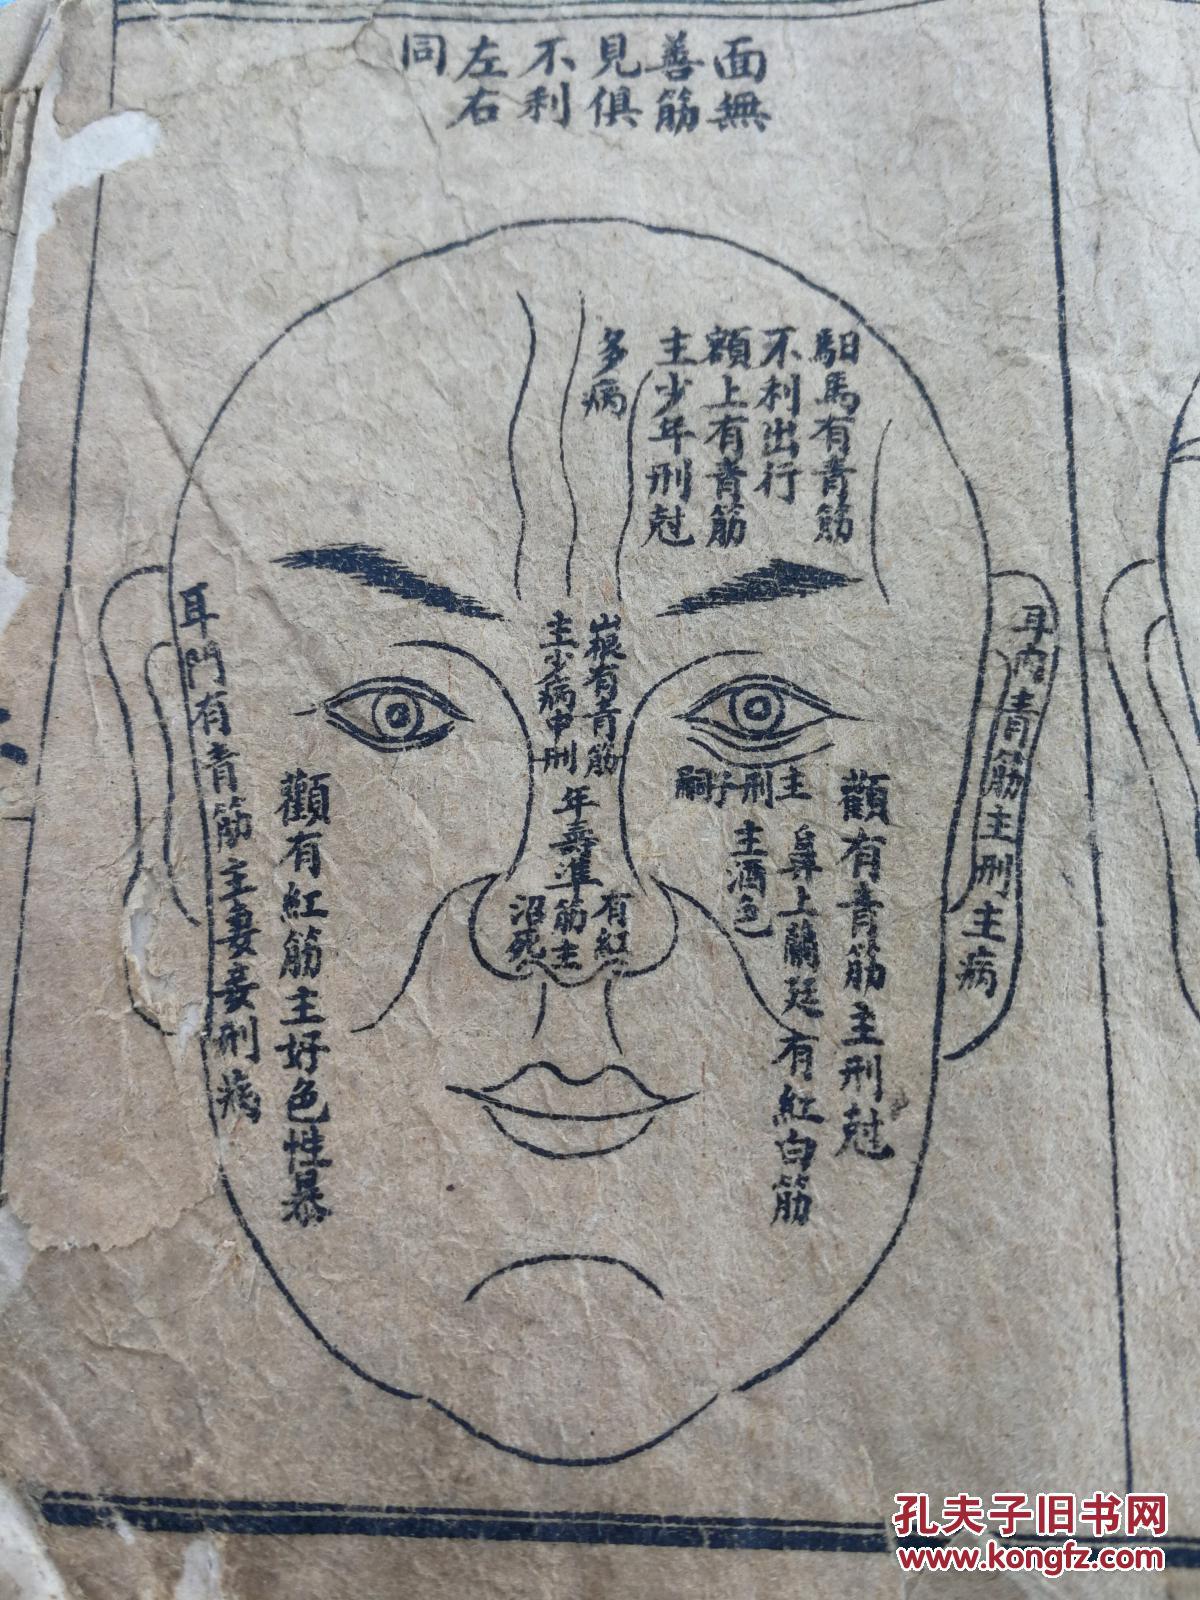 面無
善筋
見俱
不利
左右
同
馹馬有青筋
不利出行
額上有青筋
主少年刑尅
多病
耳內青筋主刑主病
顴有青筋主刑尅
主刑子嗣
鼻上蘭廷有紅白筋
主酒色
山根有青筋
主少病中刑
年壽準
有紅
筋主
沼死
顴有紅筋主好色性暴
耳門有青筋主妻妾刑病
孔夫子旧书网
www.kongfz.com